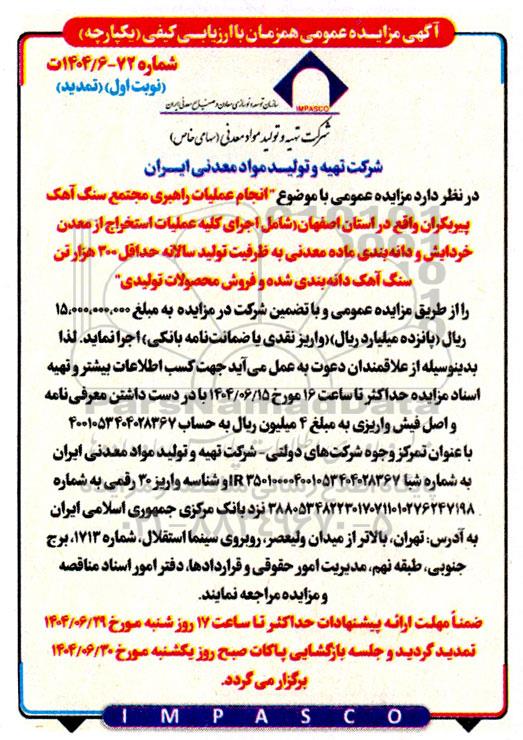 آگهی مزایده عمومی همزمان با ارزیابی کیفی (یکپارچه)
شماره ۷۲-۱۴۰۴/۶ت
(نوبت اول) (تمدید)
IMPASCO
سازمان توسعه و نوسازی معادن و صنایع معدنی ایران
شرکت تهیه و تولید مواد معدنی (سهامی خاص)
شرکت تهیه و تولید مواد معدنی ایران
در نظر دارد مزایده عمومی با موضوع "انجام عملیات راهبری مجتمع سنگ آهک
پیربکران واقع در استان اصفهان (شامل اجرای کلیه عملیات استخراج از معدن
خردایش و دانه‌بندی ماده معدنی به ظرفیت تولید سالانه حداقل ۳۰۰ هزار تن
سنگ آهک دانه‌بندی شده و فروش محصولات تولیدی"
را از طریق مزایده عمومی و با تضمین شرکت در مزایده به مبلغ ۱۵,۰۰۰,۰۰۰,۰۰۰
ریال (پانزده میلیارد ریال) (واریز نقدی یا ضمانت‌نامه بانکی) اجرا نماید. لذا
بدینوسیله از علاقمندان دعوت به عمل می‌آید جهت کسب اطلاعات بیشتر و تهیه
اسناد مزایده حداکثر تا ساعت ۱۶ مورخ ۱۴۰۴/۰۶/۱۵ با در دست داشتن معرفی‌نامه
و اصل فیش واریزی به مبلغ ۴ میلیون ریال به حساب ۴۰۰۱۰۵۳۴۰۴۰۲۸۳۶۷
با عنوان تمرکز وجوه شرکت‌های دولتی- شرکت تهیه و تولید مواد معدنی ایران
به شماره شبا IR ۳۵۰۱۰۰۰۰۴۰۰۱۰۵۳۴۰۴۰۲۸۳۶۷ و شناسه واریز ۳۰ رقمی به شماره
۳۸۸۰۵۳۴۸۲۲۳۰۱۷۰۷۱۱۰۱۰۲۷۶۲۴۷۱۹۸ نزد بانک مرکزی جمهوری اسلامی ایران
به آدرس: تهران، بالاتر از میدان ولیعصر، روبروی سینما استقلال، شماره ۱۷۱۳، برج
جنوبی، طبقه نهم، مدیریت امور حقوقی و قراردادها، دفتر امور اسناد مناقصه
و مزایده مراجعه نمایند.
ضمناً مهلت ارائه پیشنهادات حداکثر تا ساعت ۱۷ روز شنبه مورخ ۱۴۰۴/۰۶/۲۹
تمدید گردید و جلسه بازگشایی پاکات صبح روز یکشنبه مورخ ۱۴۰۴/۰۶/۳۰
برگزار می گردد.
IMPASCO
ParsNamadData
۰۲۱-۸۸۳۴۹۶۷۰-۵